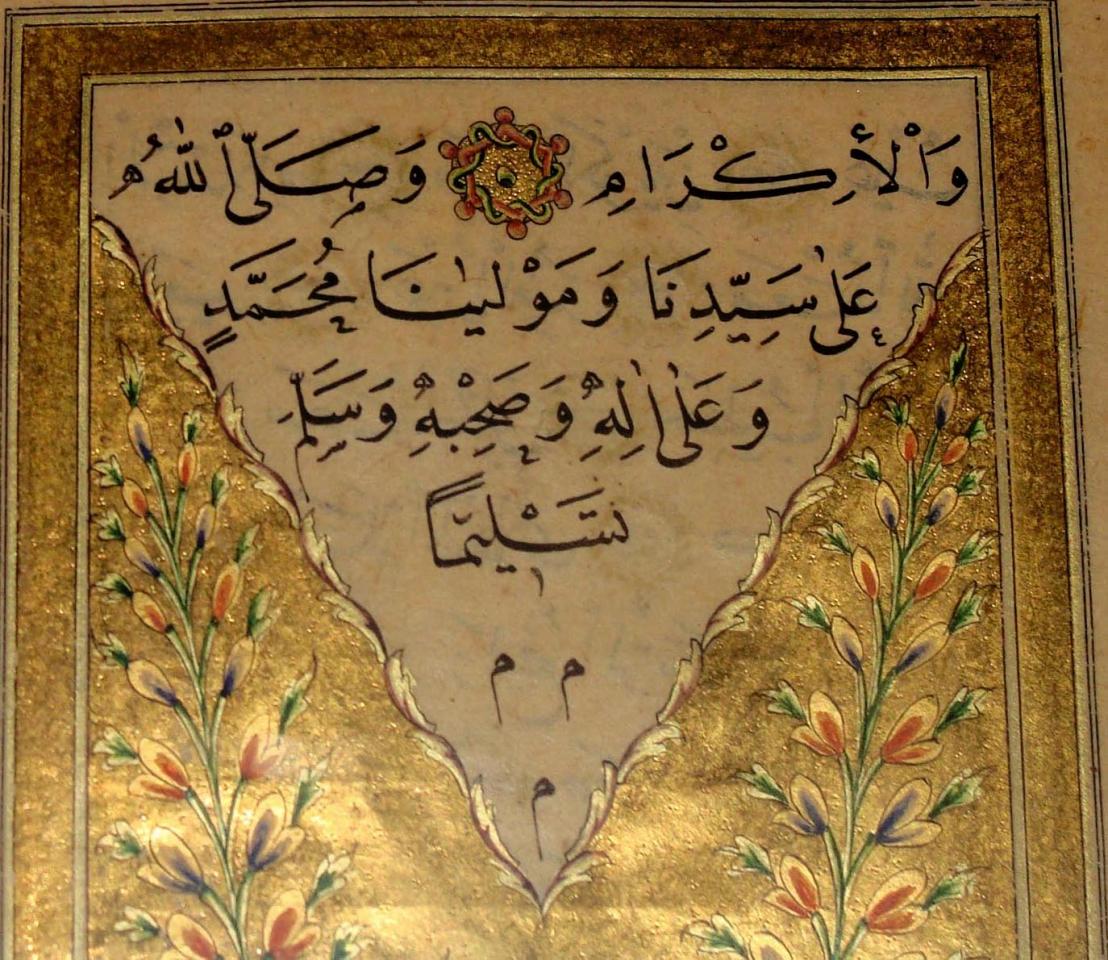 وَالْأِكْرَامِ وَصَلَّى ٱللّٰهُ
عَلٰى سَيِّدِنَا وَمَوْلٰينَا مُحَمَّدٍ
وَعَلٰى اٰلِهٖ وَصَحِبْهٖ وَسَلِّمَ
تَسْلِيمًا
م م
م